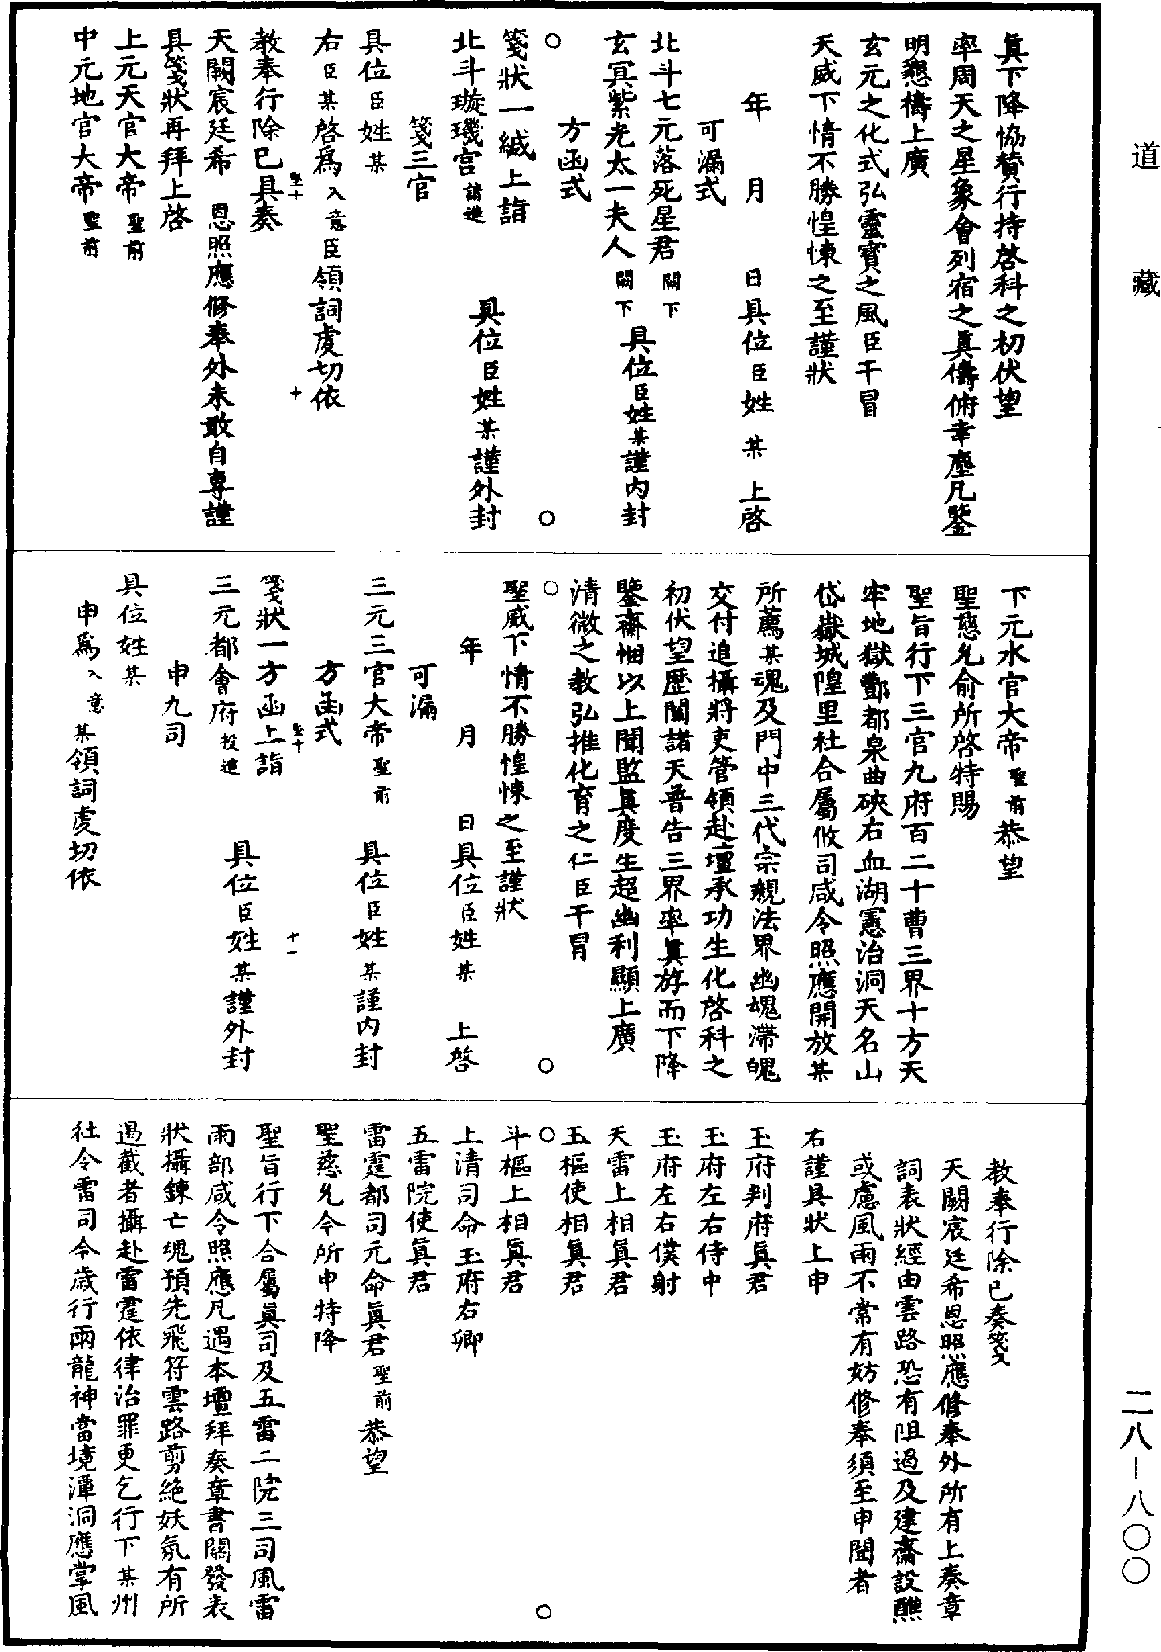 道藏
眞下降恊賛行持啓科之初伏望
率周天之星象會列宿之眞儔俯幸塵凡鑒
明懇禱上廣
玄元之化式弘靈寳之風臣干冒
天威下情不勝惶悚之至謹狀
年　月　日具位臣姓某　上啓
可漏式
北斗七元落死星君閣下
玄冥紫光太一夫人閣下　具位臣姓某謹内封
方函式
○　○
箋狀一緘上詣
北斗璇璣宫請進　具位臣姓某謹外封
箋三官
具位臣姓某
右臣某啓爲入意臣領詞虔切依
教奉行除已具奏
天闕宸廷希　恩照應修奉外未敢自專謹
具箋狀再拜上啓
上元天官大帝聖前
中元地官大帝聖前
下元水官大帝聖前恭望
聖慈允俞所啓特賜
聖旨行下三官九府百二十曹三界十方天
牢地獄酆都泉曲硤右血湖憲治洞天名山
岱嶽城隍里社合屬攸司咸令照應開放某
所薦某魂及門中三代宗親法界幽魂滯魄
交付追攝將吏管領赴壇承功生化啓科之
初伏望歷關諸天普告三界率眞斿而下降
鑒齋悃以上聞監眞度生超幽利顯上廣
清微之教弘推化育之仁臣干冒
○　○
聖威下情不勝惶悚之至謹狀
年　月　日具位臣姓某　上啓
可漏
三元三官大帝聖前　具位臣姓某謹内封
方函式
箋狀一方函上詣
三元都會府投進　具位臣姓某謹外封
申九司
具位姓某
申爲入意某領詞虔切依
教奉行除已奏箋
天闕宸廷希恩照應修奉外所有上奏章
詞表狀經由雲路恐有阻過及建齋設醮
或慮風雨不常有妨修奉須至申聞者
右謹具狀上申
玉府判府眞君
玉府左右侍中
玉府左右僕射
天雷上相眞君
玉樞使相眞君
○　○
斗樞上相眞君
上清司命玉府右卿
五雷院使眞君
雷霆都司元命眞君聖前恭望
聖慈允令所申特降
聖旨行下合屬眞司及五雷二院三司風雷
雨部咸令照應凡遇本壇拜奏章書關發表
狀攝鍊亡魂預先飛符雲路剪絶妖氛有所
遏截者攝赴雷霆依律治罪更乞行下某州
社令雷司今歲行雨龍神當境潭洞應掌風
二八－八〇〇